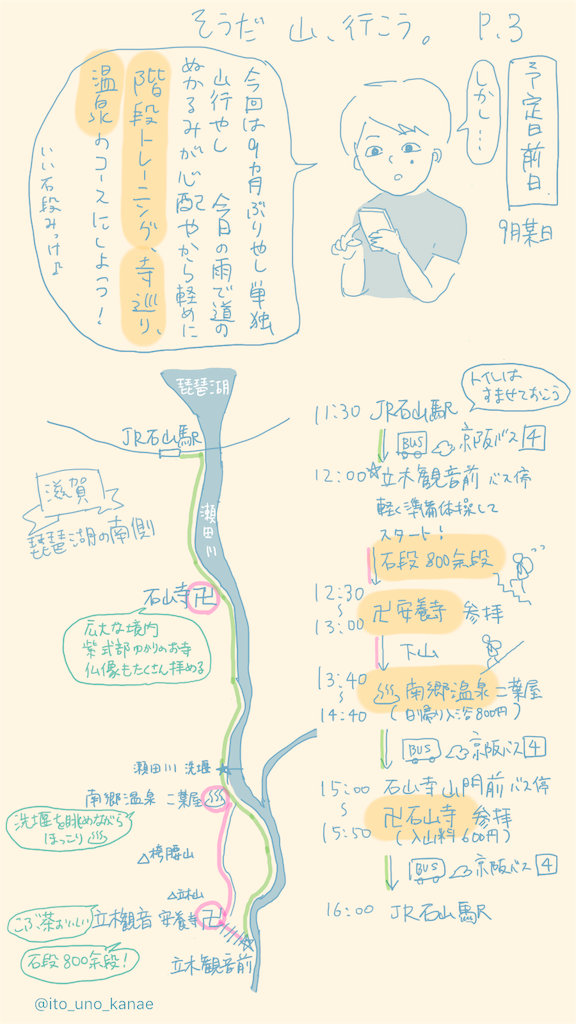 そうだ 山、行こう。 P.3
予定日前日
9月某日
しかし…
今回は9カ月ぶりやし単独
山行やし 今日の雨で道の
ぬかるみが心配やから軽めに
階段トレーニング、寺巡り、
温泉のコースにしよっう!
いい石段みっけ♪
琵琶湖
JR石山駅
滋賀
琵琶湖の南側
瀬田川
石山寺卍
広大な境内
紫式部ゆかりのお寺
仏像もたくさん拝める
瀬田川 洗堰
南郷温泉 二葉屋♨
洗堰を眺めながら
ほっこり♨
△袴腰山
△立木山
こぶ茶おいしい
立木観音 安養寺卍
石段800余段!
立木観音前
トイレは
すませておこう
11:30 JR石山駅
↓ BUS 京阪バス 4
12:00 ☆立木観音前 バス停
軽く準備体操して
スタート!
↓ 石段800余段
12:30
~
13:00
卍安養寺 参拝
↓ 下山
13:40
~
14:40
♨南郷温泉 二葉屋
(日帰り入浴800円)
↓ BUS 京阪バス 4
15:00 石山寺山門前 バス停
~
15:50
卍石山寺 参拝
(入山料600円)
↓ BUS 京阪バス 4
16:00 JR石山駅
@ito_uno_kanae